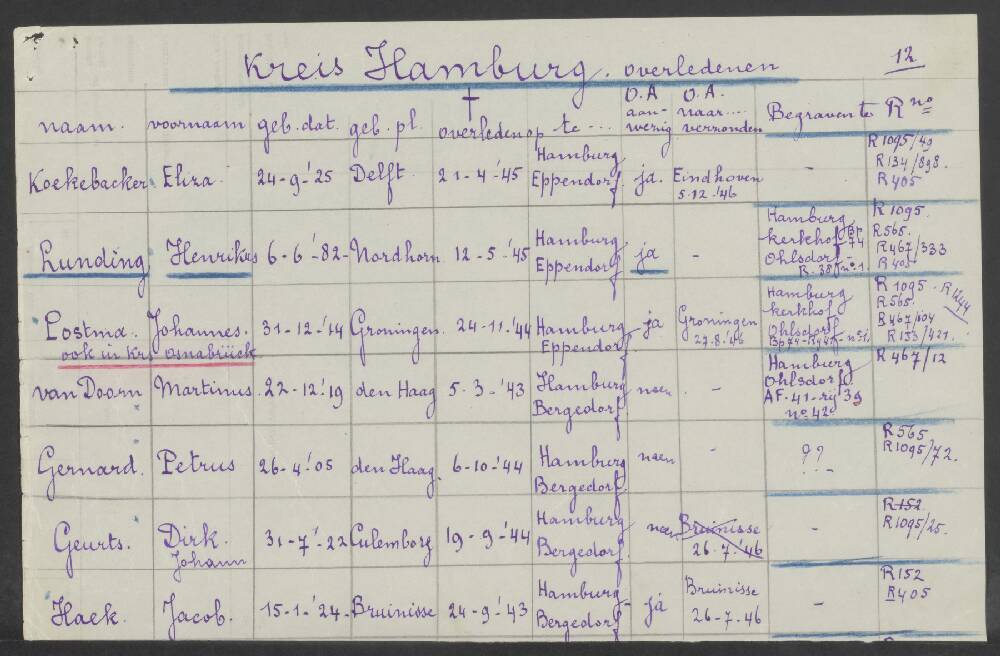 Kreis Hamburg. overledenen 12
naam. voornaam geb. dat. geb. pl. † overleden op te ... O.A aanwezig O.A. naar... verzonden Begraven te R no
Koekebacker Eliza 24-9-'25 Delft 21-4-'45 Hamburg Eppendorf ja. Eindhoven 5.12.'46 - R1095/49 R134/898. R405
Lunding Henrikus 6-6-'82- Nordhorn 12-5-'45 Hamburg Eppendorf ja - Hamburg kerkhof Ohlsdorf R.38 no 1 R1095. R565. R467/333 R405
Postma. Johannes. 31-12-'14 Groningen. 24-11-'44 Hamburg Eppendorf ja Groningen 27.8.'46 Hamburg kerkhof Ohlsdorf R1095 - R1244 R565. R467/604 R153/421.
ook in Krs Osnabrück
van Doorn Martinus 22-12-'19 den Haag 5-3-'43 Hamburg Bergedorf. neen - Hamburg Ohlsdorf AF-41-rij 39 no 42 R467/12
Gernard. Petrus 26-4-'05 den Haag. 6-10-'44 Hamburg Bergedorf. neen - ?? R565 R1095/72.
Geurts. Dirk Johann 31-7-'22 Culemborg 19-9-'44 Hamburg Bergedorf. neen Bruinisse 26.7.'46 - R152 R1095/25.
Haek. Jacob. 15-1-'24- Bruinisse 24-9-'43 Hamburg- Bergedorf ja Bruinisse 26-7-'46 - R152 R405